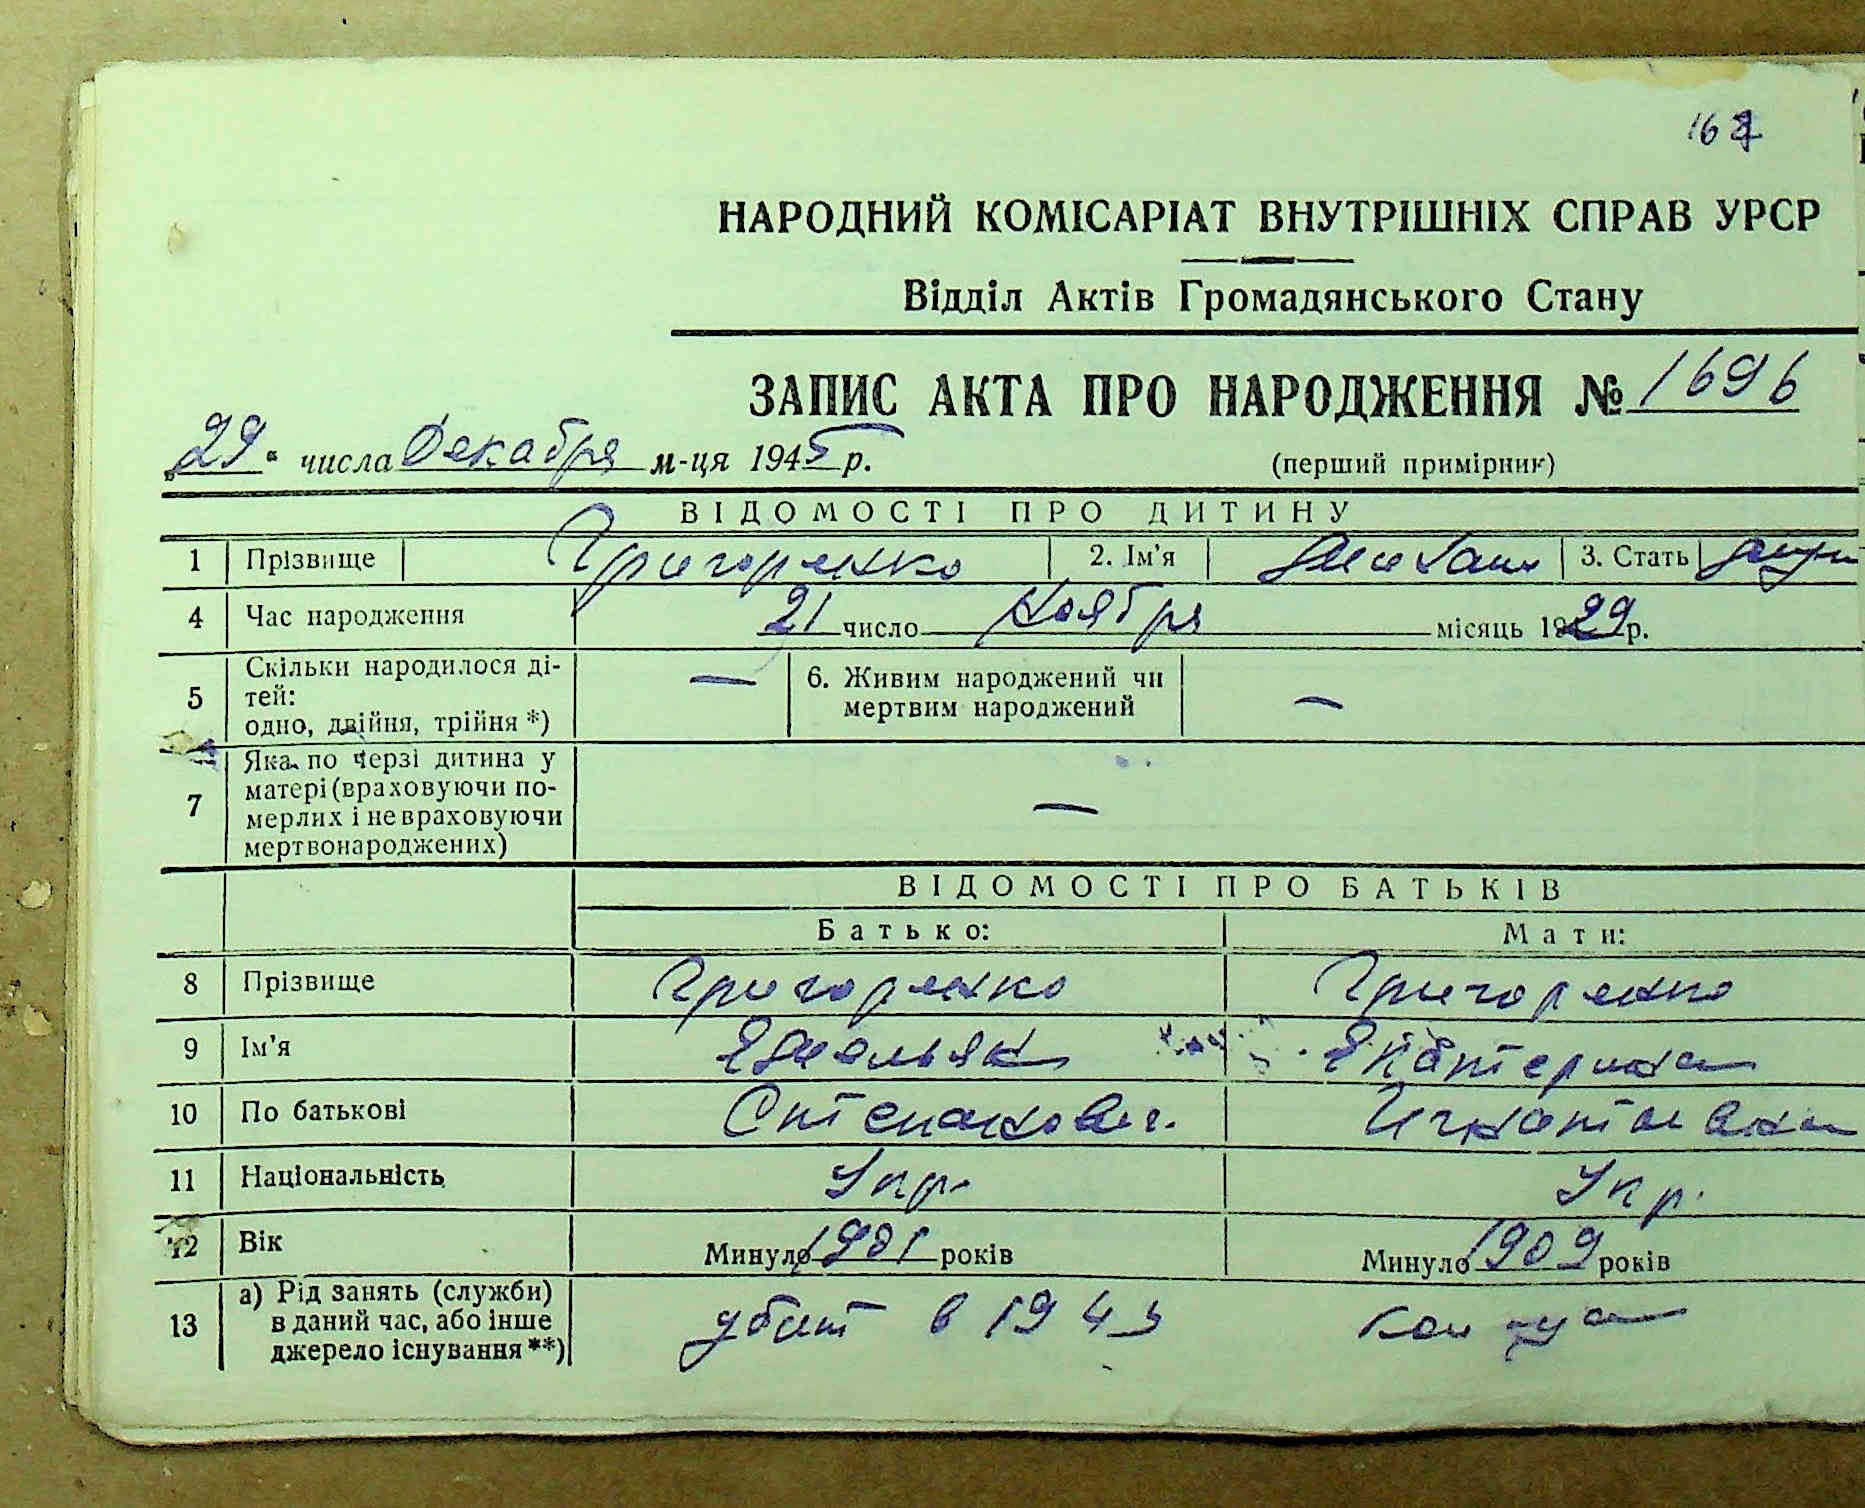 НАРОДНИЙ КОМІСАРІАТ ВНУТРІШНІХ СПРАВ УРСР
Відділ Актів Громадянського Стану
ЗАПИС АКТА ПРО НАРОДЖЕННЯ № 1696
„29“ числа Декабря м-ця 1945 р. (перший примірник)
ВІДОМОСТІ ПРО ДИТИНУ
1 Прізвище Григоренко 2. Ім'я 3. Стать
4 Час народження 21 число Ноября місяць 1929 р.
5 Скільки народилося ді-
тей:
одно, двійня, трійня *) — 6. Живим народжений чи
мертвим народжений —
7 Яка по черзі дитина у
матері (враховуючи по-
мерлих і не враховуючи
мертвонароджених) —
ВІДОМОСТІ ПРО БАТЬКІВ
Батько: Мати:
8 Прізвище Григоренко Григоренко
9 Ім'я Емельян Екатерина
10 По батькові Степанович. Игнатовна
11 Національність Укр. Укр.
12 Вік Минуло 1901 років Минуло 1909 років
13 а) Рід занять (служби)
в даний час, або інше
джерело існування **) убит в 1943